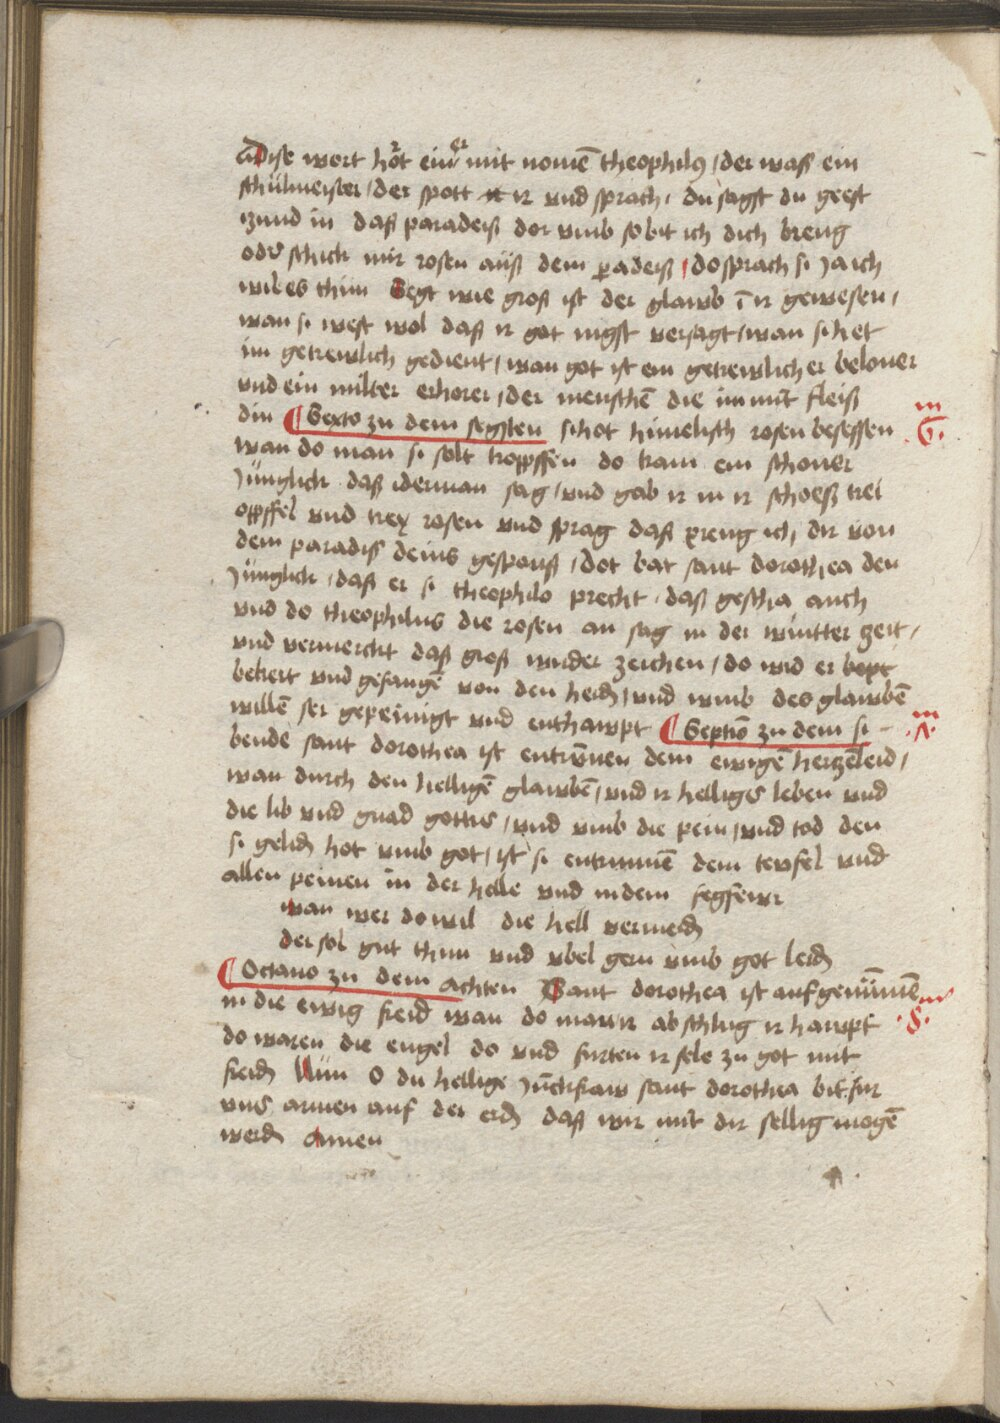 dise wort hot einer mit nomē theophilꝯ / der waß ein
schůlmeister / der spott ir vnd sprach / du sagst du geest
izund in daß paradeiß dor vmb so bit ich dich breng
oder schick mir rosen auß dem ꝑadeiß / do sprach si Ja ich
wil es thun Segt wie groß ist der glawb ī ir gewesen /
wan si west wol daß ir got nigst versagt / wan si het
im getrewlich gedient / wan got ist ein getrewlicher beloner
vnd ein milter erhorer / der menschē die im mit fleiß
din ¶ Sexto zu dem segsten si hot himelisch rosen besessen
wan do man si solt kopffen do kam ein schoner
Jünglick daß iderman sag / vnd gab ir in ir schoeß trei
opffel vnd trey rosen vnd sprag daß preng ich dir von
dem paradiß deins gesponß / dot bat sant dorothea den
Jünglick / daß er si theophilo precht / daß gescha auch
vnd do theophilus die rosen an sag in der wintter zeit /
vnd vermerckt daß groß wuder zeichen / do wid er
bekert vnd gefangē von den heidē / vnd vmb des glawbē
willē ser gepeinigt vnd enthawpt ¶ Septīo zu dem si-
bende sant dorothea ist entrūnen dem ewigē herzēleid /
wan durch den helligē glawbē / vnd ir helliges leben vnd
die lib vnd gnad gottis / vnd vmb die pein / vnd tod den
si gelidē hot vmb got / ist si entrunnē dem tewfel vnd
allen peinen in der helle vnd in dem fegfewr
wan wer do wil die hell vermeidē
der sol gut thun vnd vbel gern vmb got leidē
¶ Octauo zu dem achten Sant dorothea ist aufgenūmē
in die ewig freid wan do man ir ab schlug ir hawpt
do waren die engel do vnd furten ir sele zu got mit
freidē Nün O du hellige Jūckfraw sant dorothea bit fur
vns armen auf der erdē daß wir mit dir sellig mogē
werdē Amen